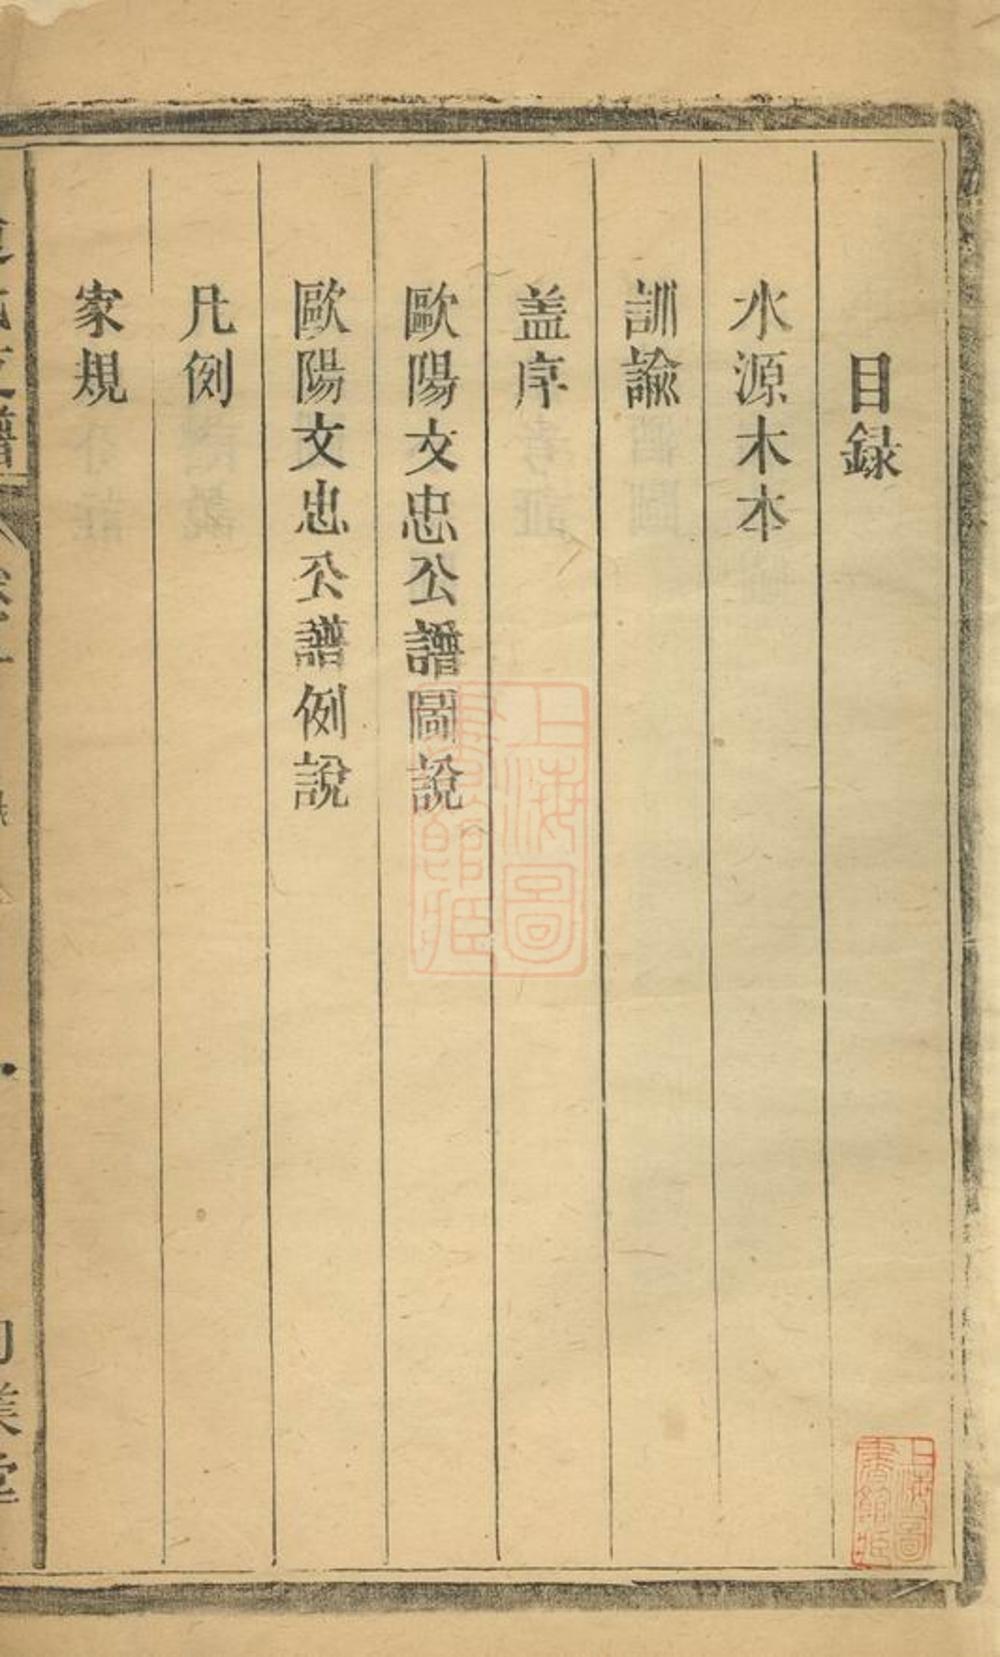 目録
水源木本
訓諭
盖序
歐陽文忠公譜圖說
歐陽文忠公譜例說
凡例
家規
上海圖書館藏
上海圖書館藏